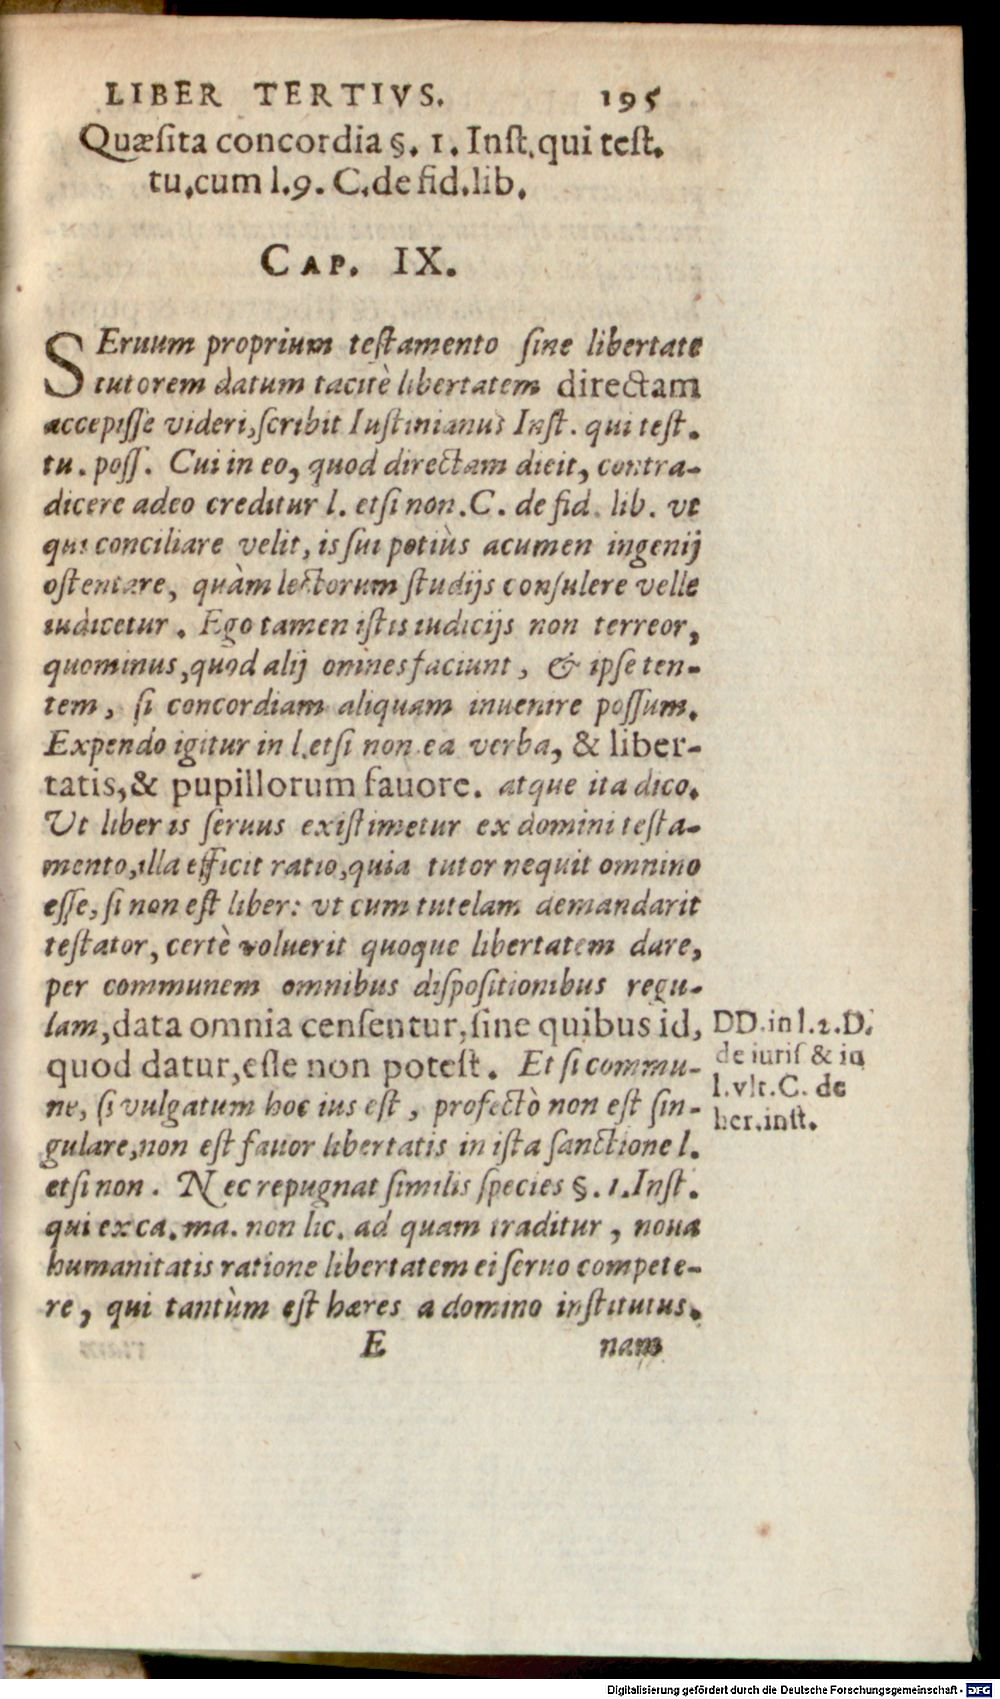 LIBER TERTIVS. 195
Quæsita concordia §. 1. Inst. qui test.
tu. cum l. 9. C. de fid. lib.
CAP. IX.
SEruum proprium testamento sine libertate
tutorem datum tacitè libertatem directam
accepisse videri, scribit Iustinianus Inst. qui test.
tu. poss. Cui in eo, quod directam dicit, contra-
dicere adeo creditur l. etsi non. C. de fid. lib. vt
qui conciliare velit, is sui potiùs acumen ingenij
ostentare, quàm lectorum studijs consulere velle
iudicetur. Ego tamen istis iudicijs non terreor,
quominus, quod alij omnes faciunt, & ipse ten-
tem, si concordiam aliquam inuenire possum.
Expendo igitur in l. etsi non ea verba, & liber-
tatis, & pupillorum fauore. atque ita dico.
Vt liber is seruus existimetur ex domini testa-
mento, illa efficit ratio, quia tutor nequit omnino
esse, si non est liber: vt cum tutelam demandarit
testator, certè voluerit quoque libertatem dare,
per communem omnibus dispositionibus regu-
lam, data omnia censentur, sine quibus id,
quod datur, esse non potest. Et si commu-
ne, si vulgatum hoc ius est, profectò non est sin-
gulare, non est fauor libertatis in ista sanctione l.
etsi non. Nec repugnat similis species §. 1. Inst.
qui ex ca. ma. non lic. ad quam traditur, noua
humanitatis ratione libertatem ei seruo compete-
re, qui tantùm est hæres a domino institutus.
E nam
DD. in l. 2. D.
de iuris & in
l. vlt. C. de
her. inst.
Digitalisierung gefördert durch die Deutsche Forschungsgemeinschaft - DFG